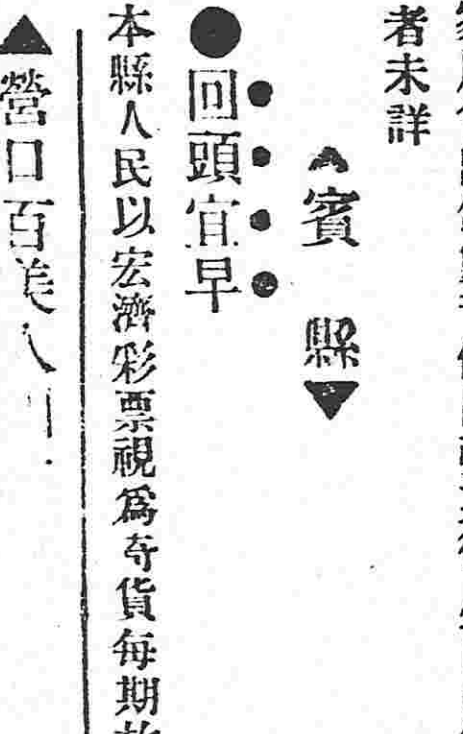 者未詳
▲賓縣▼
●回頭宜早
本縣人民以宏濟彩票視爲奇貨每期
▲營口百美人